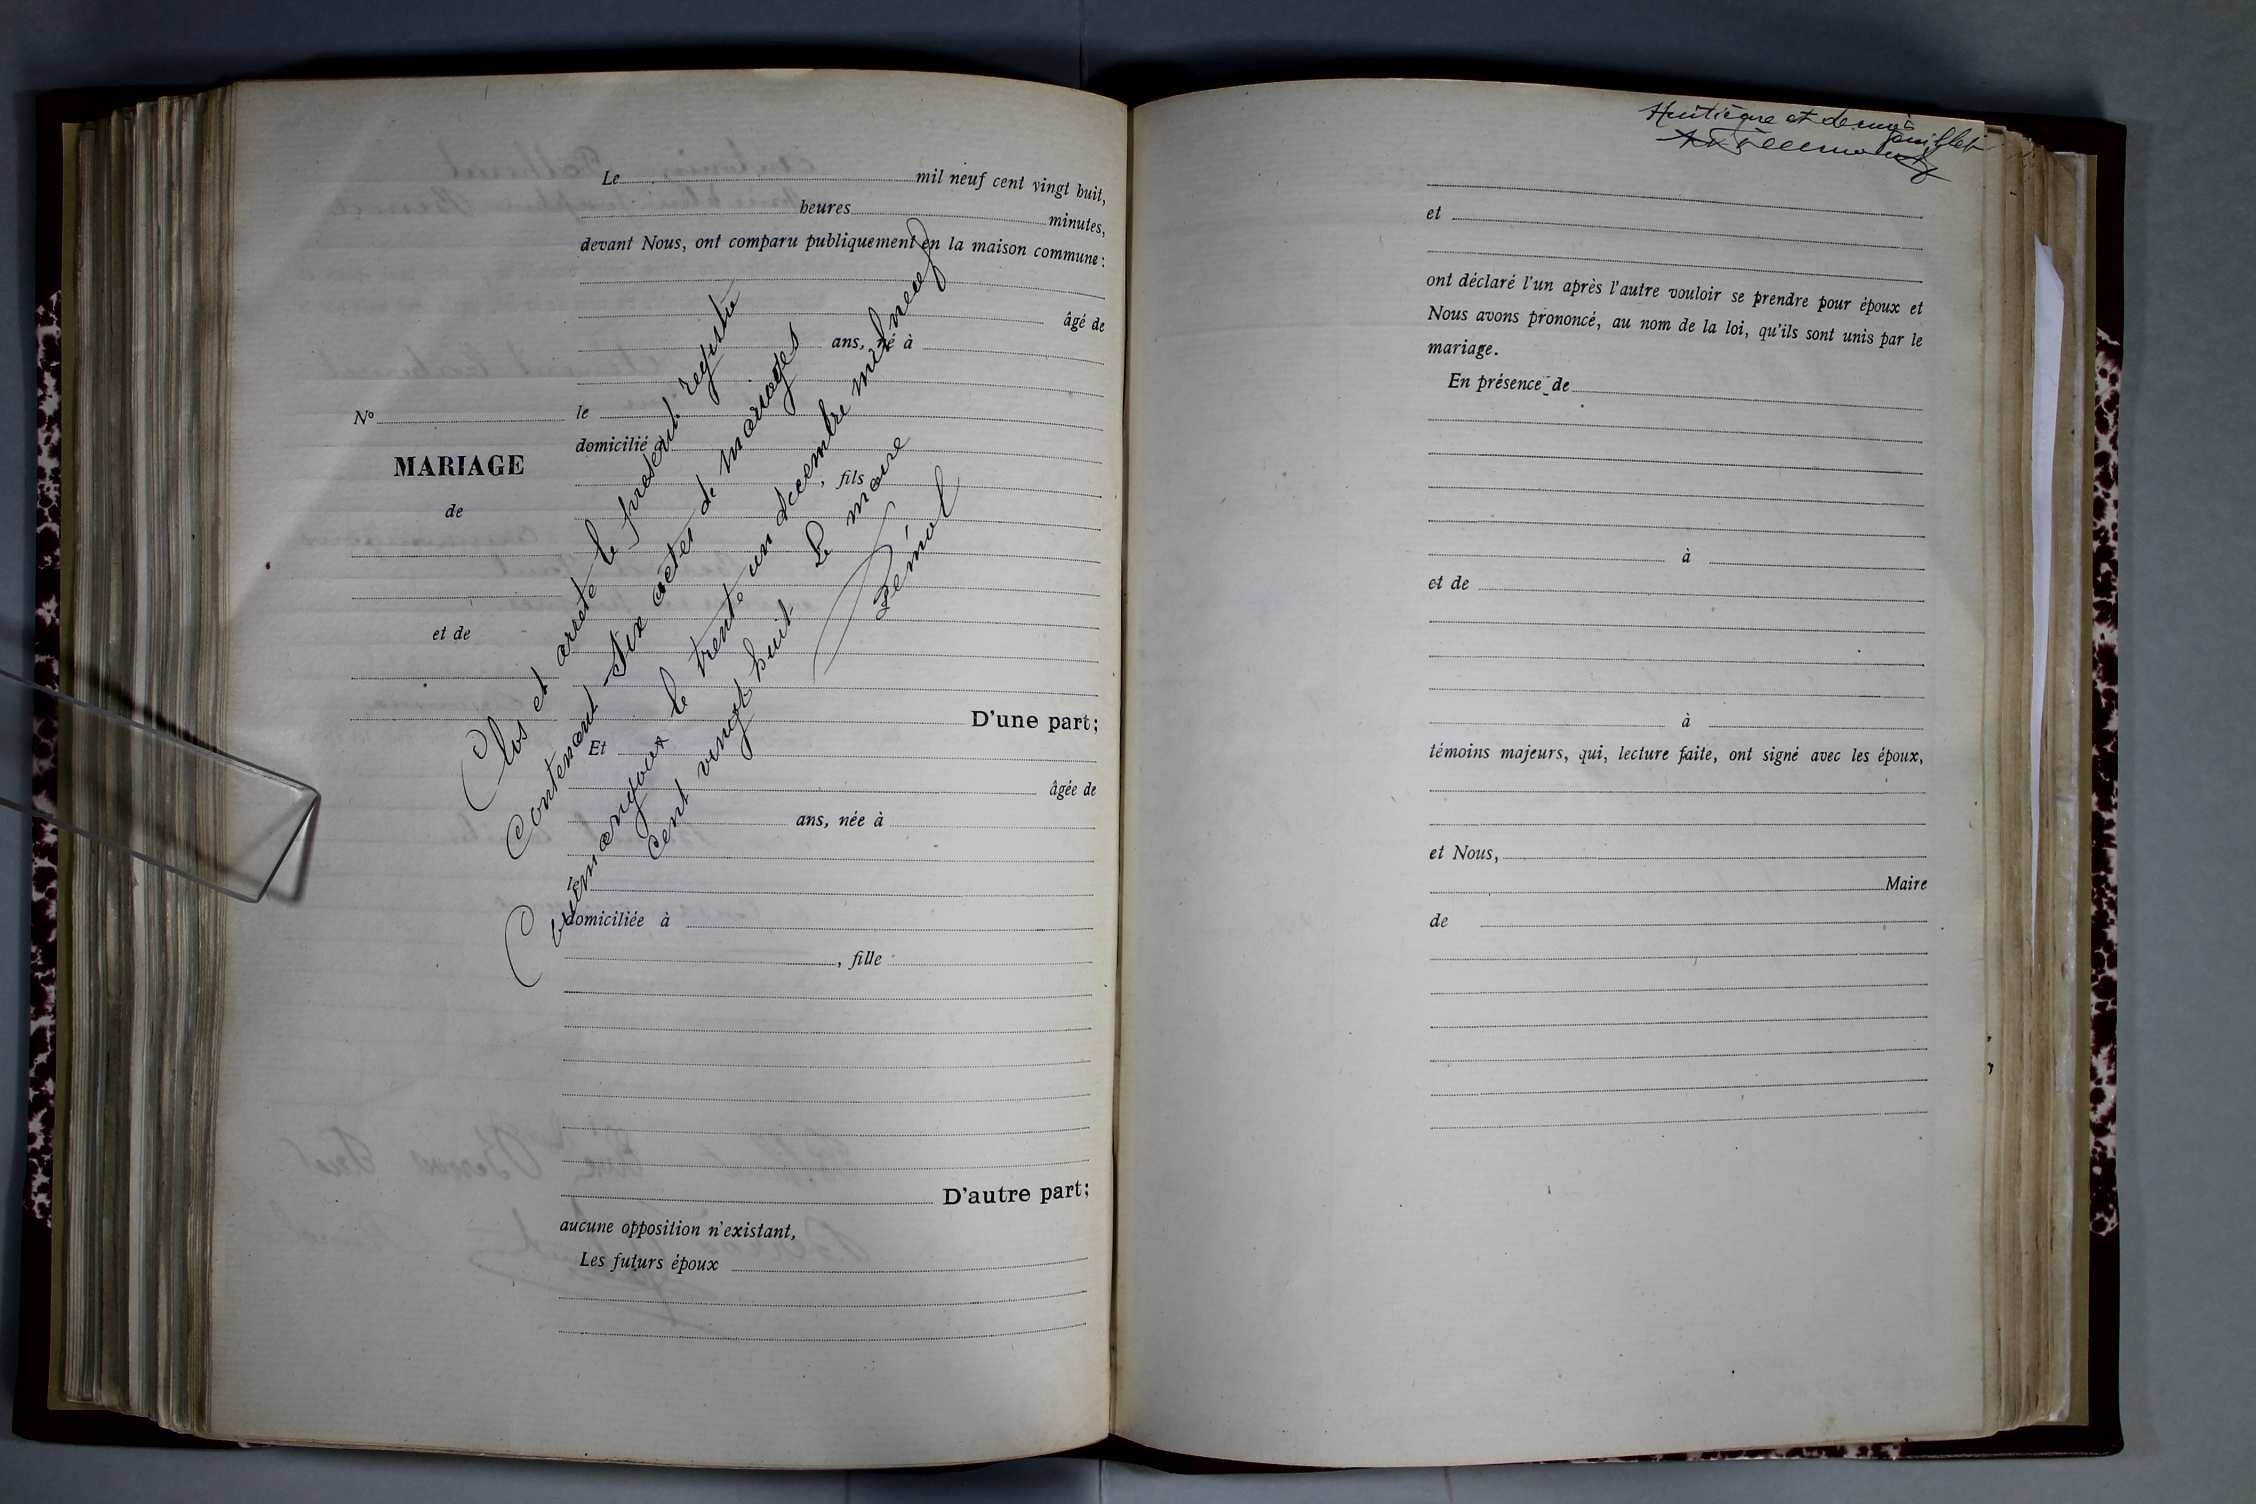 Le mil neuf cent vingt huit,
heures minutes,
devant Nous, ont comparu publiquement en la maison commune :
âgé de
ans, né à
No
le
domicilié
MARIAGE
, fils
de
et de
D'une part;
Et
âgée de
ans, née à
le
domiciliée à
, fille
D'autre part;
aucune opposition n'existant,
Les futurs époux
Clos et arrêté le présent registre
contenant six actes de mariages
le trente un décembre mil neuf
cent vingt huit
Le maire
Huitième et dernier
feuillet
et
ont déclaré l'un après l'autre vouloir se prendre pour époux et
Nous avons prononcé, au nom de la loi, qu'ils sont unis par le
mariage.
En présence de
à
et de
à
témoins majeurs, qui, lecture faite, ont signé avec les époux,
et Nous,
Maire
de